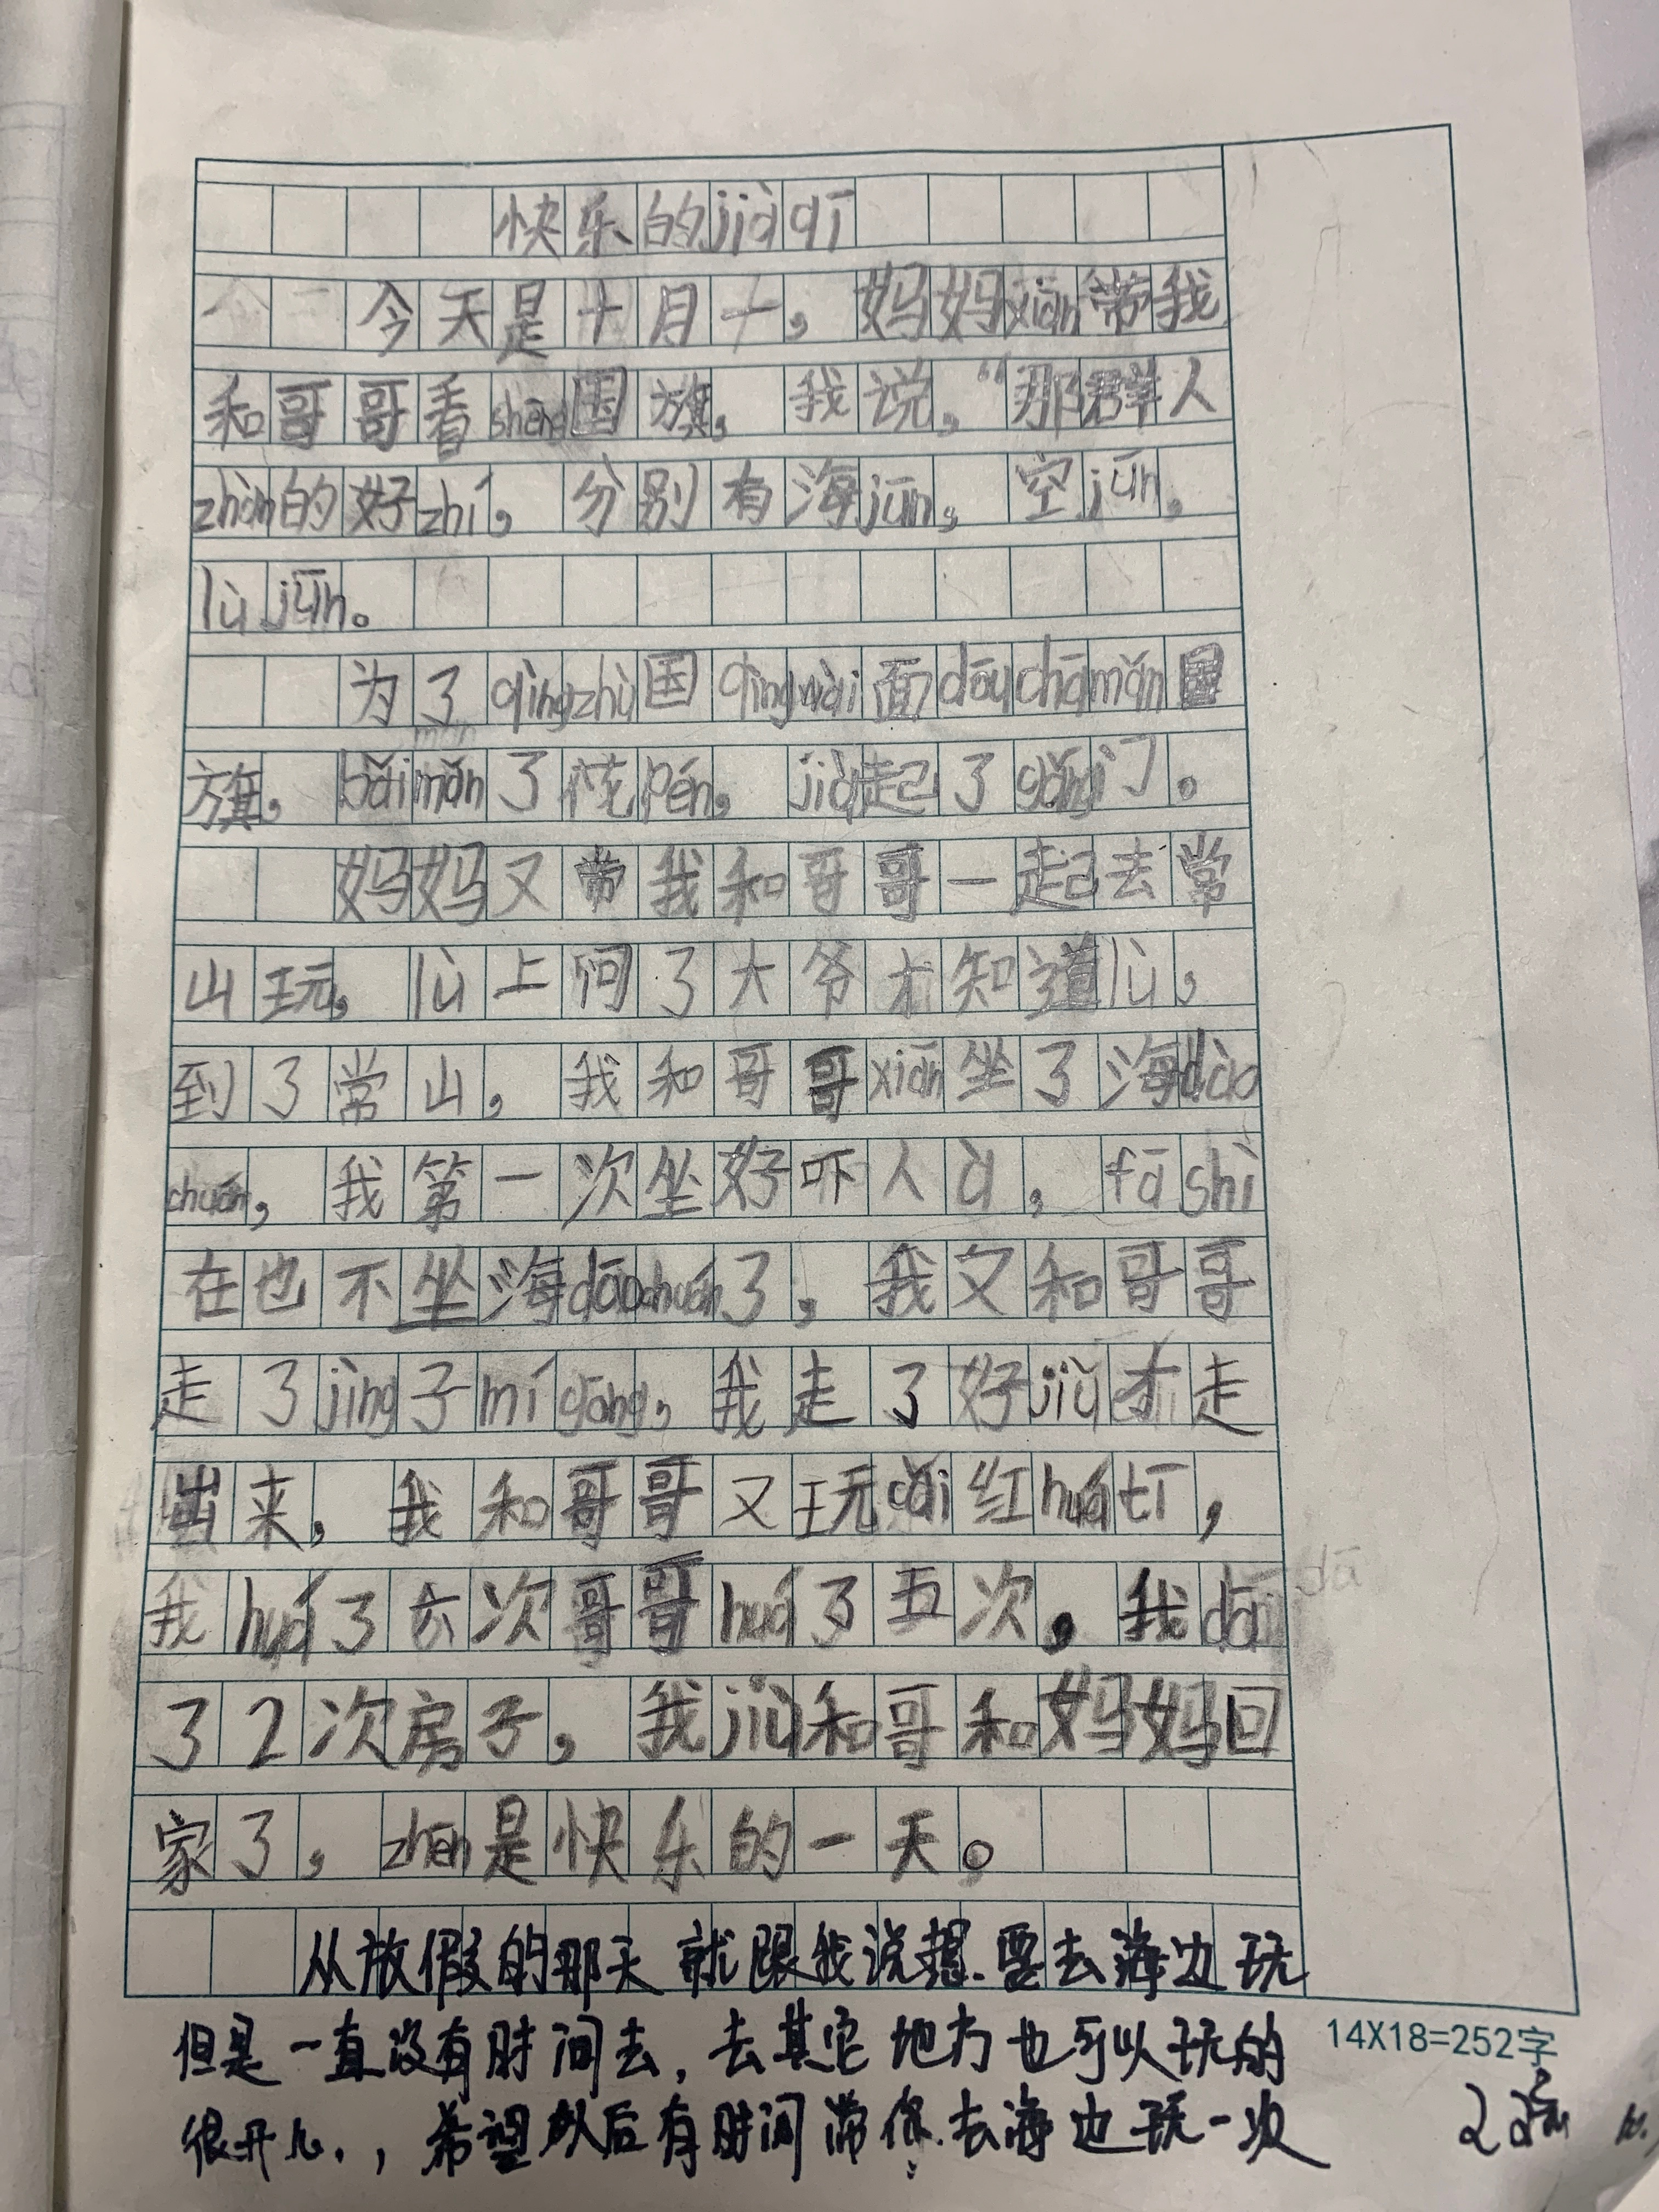 快乐的jiàqī
今天是十月一，妈妈xiān带我
和哥哥看shēng国旗，我说，“那群人
zhàn的好zhí，分别有海jūn，空jūn，
lù jūn。
为了qìngzhù国qìng wài面dōu chā mǎn国
旗，bǎi mǎn了花pén，jià起了gǒng门。
妈妈又带我和哥哥一起去常
山玩，lù上问了大爷才知道lù，
到了常山，我和哥哥xiān坐了海dào
chuán，我第一次坐好吓人à，fā shì
在也不坐海dāochuán了，我又和哥哥
走了jìng子mí gōng，我走了好jiǔ才走
出来，我和哥哥又玩cǎi红huá tī，
我huá了六次哥哥huá了五次，我dāi dā
了2次房子，我jiù和哥和妈妈回
家了，zhēn是快乐的一天。
从放假的那天就跟我说想要去海边玩
但是一直没有时间去，去其它地方也可以玩的
14X18=252字
很开心，希望以后有时间带你去海边玩一次